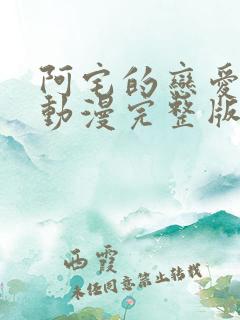 阿宅的戀愛
動漫完整版
西霞
未经同意禁止转载